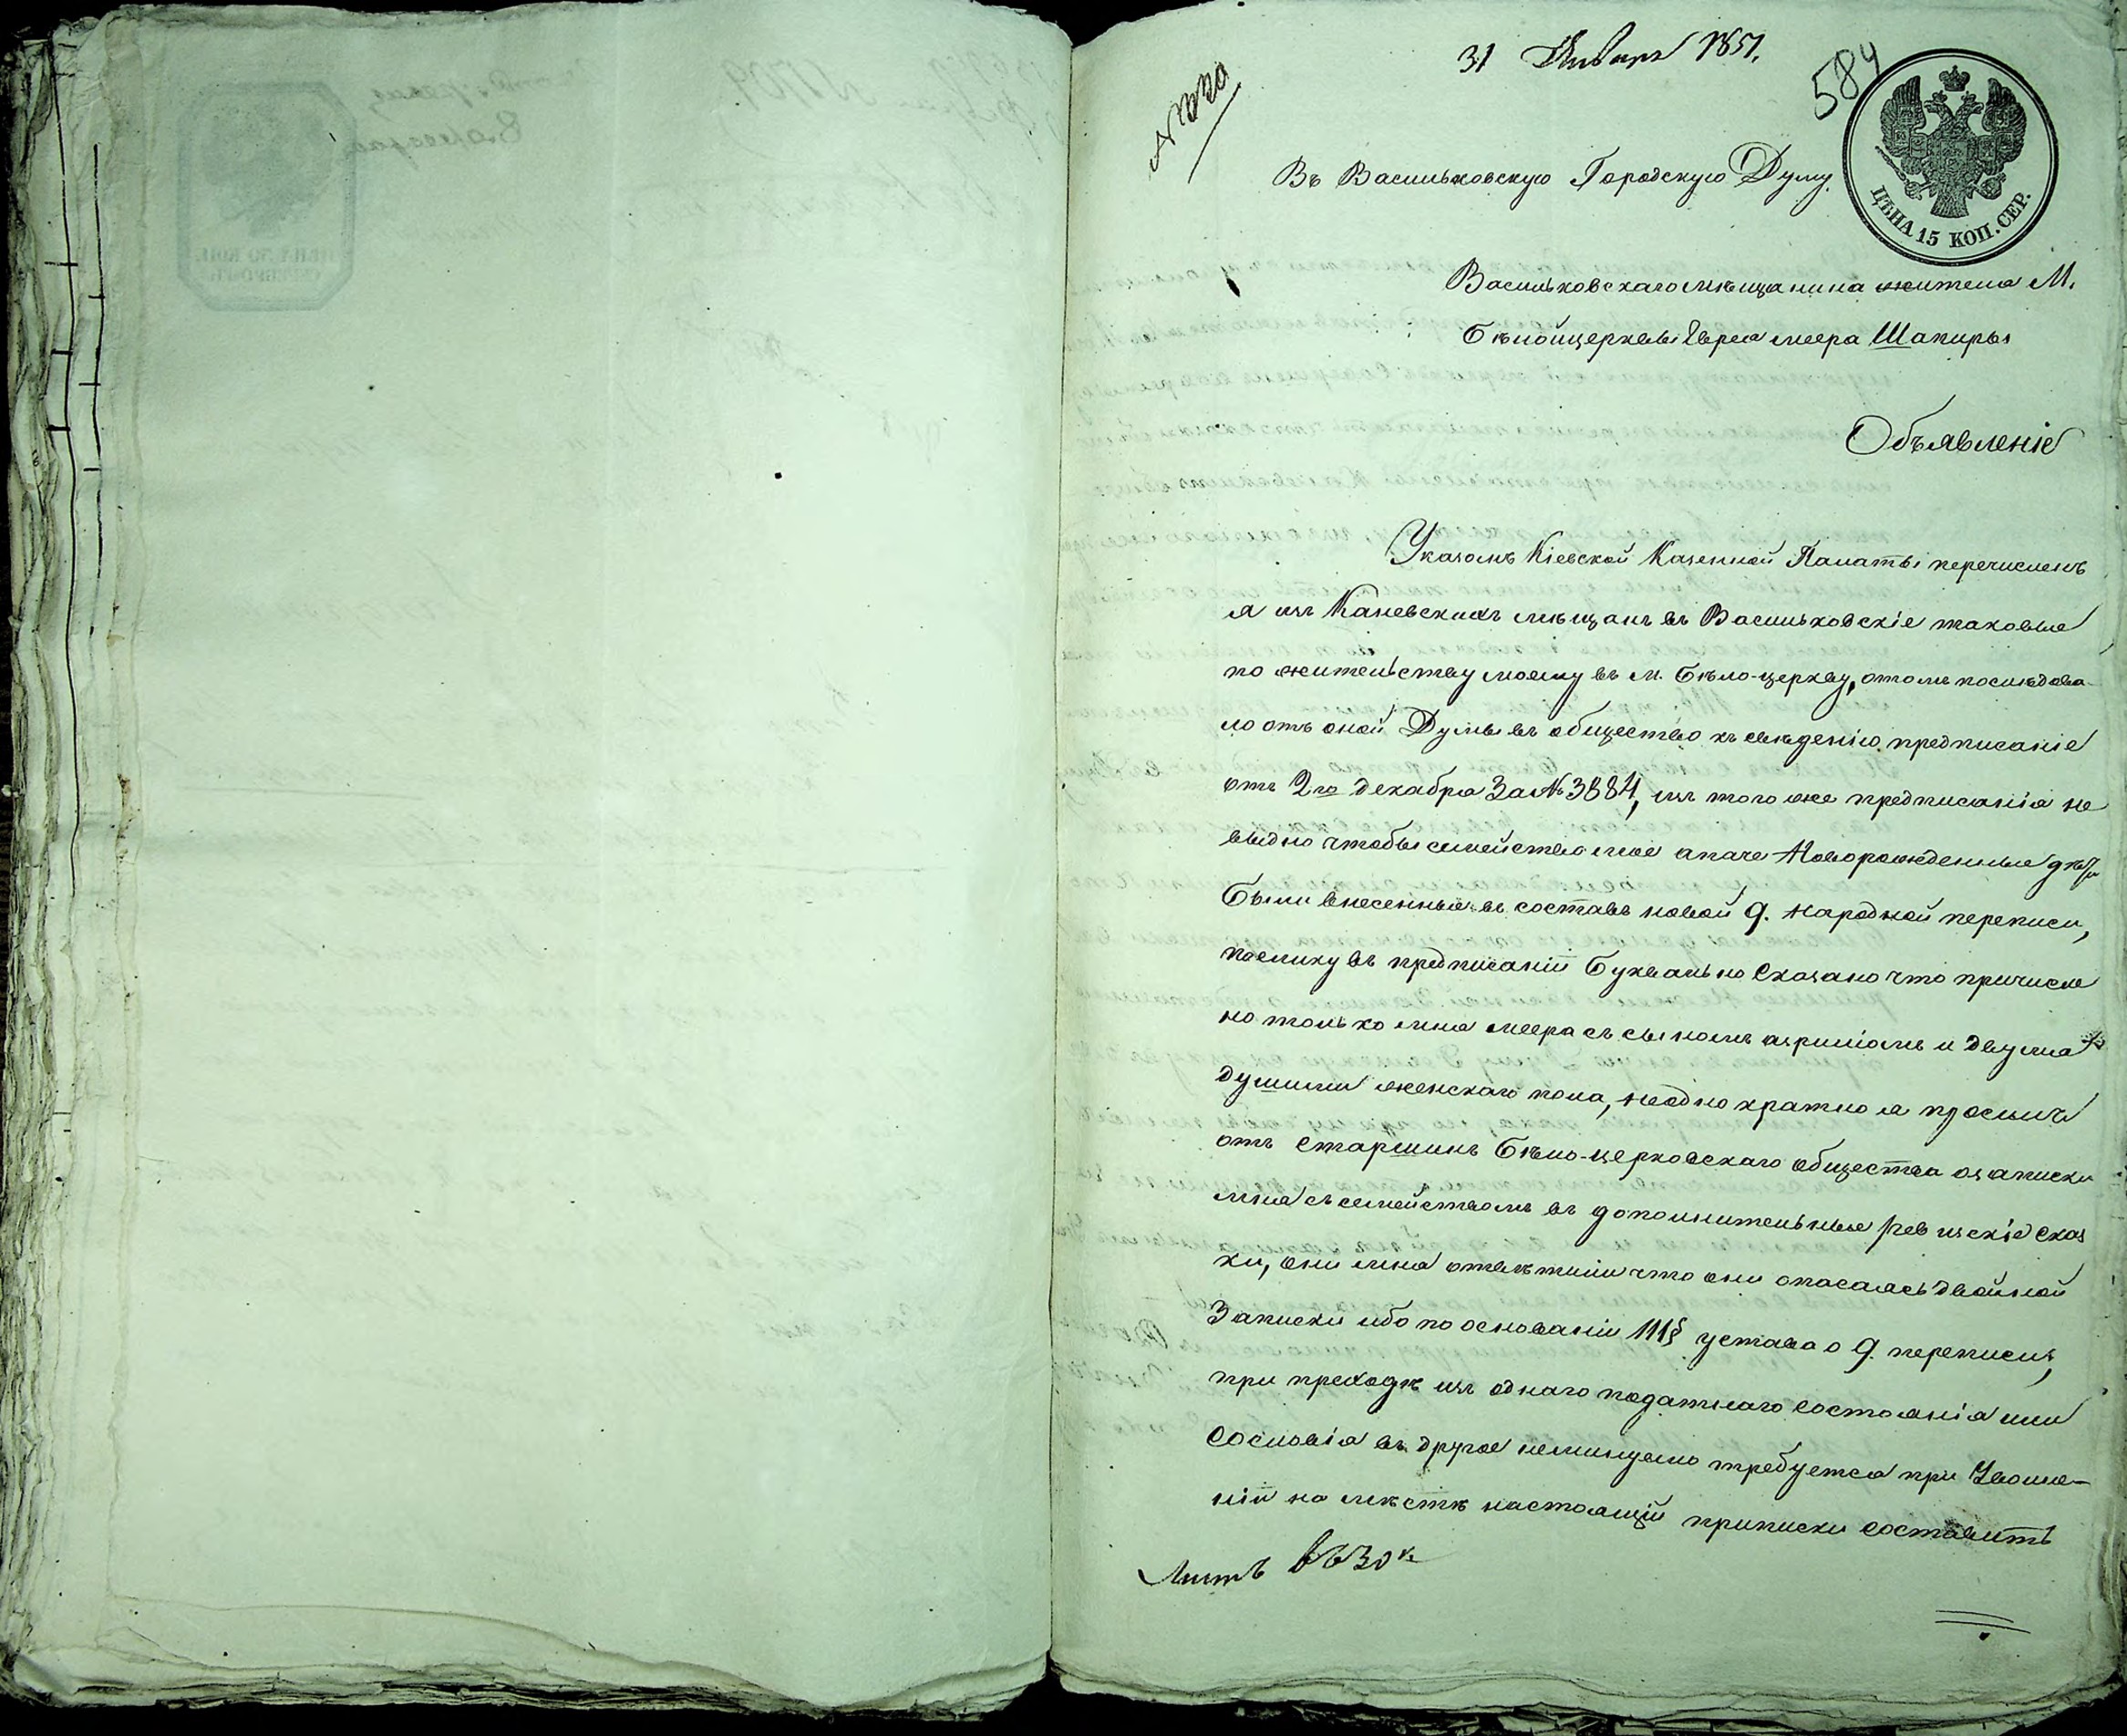 31 Января 1851.
584
Въ Васильковскую Городскую Думу.
ЦѢНА 15 КОП. СЕР.
Васильковскаго мѣщанина жителя М.
Бѣлойцеркви Еврея Меера Шапиры
Объявленіе
Указомъ Кіевской Казенной Палаты перечисленъ
я изъ Каневскихъ мѣщанъ въ Васильковскіе таковые
по жительству моему въ м. Бѣло-церкву, о томъ последова-
ло отъ оной Думы въ общество къ сведенію предписаніе
отъ 2го декабря За № 3884, изъ того же предписанія не
видно чтобы семейство мое а паче Новорожденные дѣти
были внесенные въ составъ новой 9. народной переписи,
поелику въ предписаніи буквально сказано что причисле
но только мня Меера съ сыномъ азриіомъ и двумя
душими женскаго пола, неоднократно я просилъ
отъ старшинъ Бѣло-церковскаго общества о записки
мня съ семействомъ въ дополнительные ревизскіе сказ
ки, они мня отвѣтили что они опасаясь двойной
Записки ибо по основаніи 111§ устава о 9. переписи,
при преходѣ изъ однаго податнаго состоянія или
Сословія въ другое неминуемо требуется при
ніи на мѣстѣ настоящій приписки составить
Листъ въ 30 к